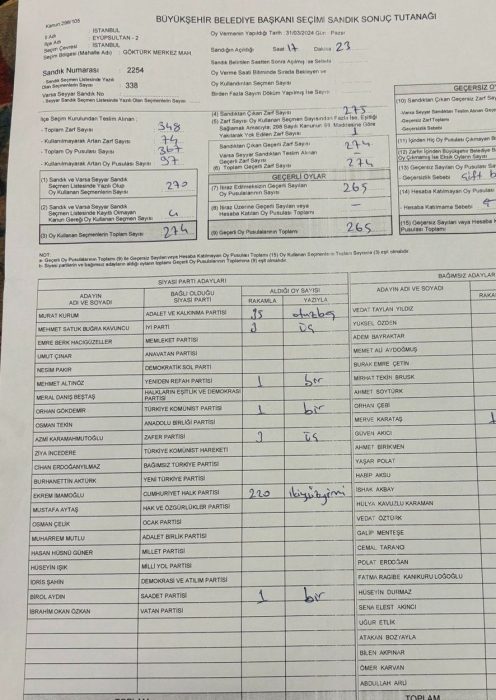 Kanun 298/105
BÜYÜKŞEHİR BELEDİYE BAŞKANI SEÇİMİ SANDIK SONUÇ TUTANAĞI
İl Adı : İSTANBUL
İlçe Adı : EYÜPSULTAN - 2
Seçim Çevresi : İSTANBUL
Seçim Bölgesi (Mahalle Adı) : GÖKTÜRK MERKEZ MAH.
Sandık Numarası : 2254
Sandık Seçmen Listesinde Yazılı Olan Seçmenlerin Sayısı : 338
Varsa Seyyar Sandık No :
Seyyar Sandık Seçmen Listesinde Yazılı Olan Seçmenlerin Sayısı :
Oy Vermenin Yapıldığı Tarih : 31/03/2024 Gün : Pazar
Sandığın Açıldığı Saat 17 Dakika 23
Sandık Belirtilen Saatten Sonra Açılmış ise Sebebi
Oy Verme Saati Bitiminde Sırada Bekleyen ve Oy Kullandırılan Seçmen Sayısı
Birden Fazla Sayım Döküm Yapılmış İse Sayısı
İlçe Seçim Kurulundan Teslim Alınan;
- Toplam Zarf Sayısı 348
- Kullanılmayarak Artan Zarf Sayısı 74
- Toplam Oy Pusulası Sayısı 367
- Kullanılmayarak Artan Oy Pusulası Sayısı
(1) Sandık ve Varsa Seyyar Sandık Seçmen Listesinde Yazılı Olup Oy Kullanan Seçmenlerin Sayısı 270
(2) Sandık ve Varsa Seyyar Sandık Seçmen Listesinde Kayıtlı Olmayan Kanun Gereği Oy Kullanan Seçmen Sayısı 4
(3) Oy Kullanan Seçmenlerin Toplam Sayısı 274
(4) Sandıktan Çıkan Zarf Sayısı 275
(5) Zarf Sayısı Oy Kullanan Seçmen Sayısından Fazla İse, Eşitliği Sağlamak Amacıyla; 298 Sayılı Kanunun 98. Maddesine Göre Yakılarak Yok Edilen Zarf Sayısı
Sandıktan Çıkan Geçerli Zarf Sayısı 274
Varsa Seyyar Sandıktan Teslim Alınan Geçerli Zarf Sayısı
(6) Toplam Geçerli Zarf Sayısı 274
GEÇERLİ OYLAR
(7) İtiraz Edilmeksizin Geçerli Sayılan Oy Pusulası Toplamı 265
(8) İtiraz Üzerine Geçerli Sayılan veya Hesaba Katılan Oy Pusulası Toplamı -
(9) Geçerli Oy Pusulalarının Toplamı 265
GEÇERSİZ OY
(10) Sandıktan Çıkan Geçersiz Zarf Sayısı
Varsa Seyyar Sandıktan Teslim Alınan Geçersiz Zarf
Geçersiz Zarf Toplamı
- Geçersizlik Sebebi
(11) İçinden Hiç Oy Pusulası Çıkmayan
(12) Zarfın İçinden Büyükşehir Belediye
(13) Geçersiz Sayılan Oy Pusulası
- Geçersizlik Sebebi
(14) Hesaba Katılmayan Oy Pusulası
- Hesaba Katılmama Sebebi
(15) Geçersiz Sayılan veya Hesaba
Pusulası Toplamı
NOT:
a- Geçerli Oy Pusulalarının Toplamı (9) ile Geçersiz Sayılan veya Hesaba Katılmayan Oy Pusulası Toplamı (15) Oy Kullanan Seçmenlerin Toplam Sayısına (3) eşit olmalıdır.
b- Siyasi partilerin ve bağımsız adayların aldığı oyların toplamı Geçerli Oy Pusulalarının Toplamına (9) eşit olmalıdır.
SİYASİ PARTİ ADAYLARI
ADAYIN ADI VE SOYADI BAĞLI OLDUĞU SİYASİ PARTİ ALDIĞI OY SAYISI RAKAMLA YAZIYLA
MURAT KURUM ADALET VE KALKINMA PARTİSİ 35 otuzbeş
MEHMET SATUK BUĞRA KAVUNCU İYİ PARTİ 3 üç
EMRE BERK HACIGÜZELLER MEMLEKET PARTİSİ
UMUT ÇINAR ANAVATAN PARTİSİ
NESİM PAKIR DEMOKRATİK SOL PARTİ
MEHMET ALTINÖZ YENİDEN REFAH PARTİSİ 1 bir
MERAL DANIŞ BEŞTAŞ HALKLARIN EŞİTLİK VE DEMOKRASİ PARTİSİ
ORHAN GÖKDEMİR TÜRKİYE KOMÜNİST PARTİSİ 1 bir
OSMAN TEKİN ANADOLU BİRLİĞİ PARTİSİ
AZMİ KARAMAHMUTOĞLU ZAFER PARTİSİ 3 üç
ZİYA İNCEDERE TÜRKİYE KOMÜNİST HAREKETİ
CİHAN ERDOĞANYILMAZ BAĞIMSIZ TÜRKİYE PARTİSİ
BURHANETTİN AKTÜRK YENİ TÜRKİYE PARTİSİ
EKREM İMAMOĞLU CUMHURİYET HALK PARTİSİ 220 ikiyüzyirmi
MUSTAFA AYTAŞ HAK VE ÖZGÜRLÜKLER PARTİSİ
OSMAN ÇELİK OCAK PARTİSİ
MUHARREM MUTLU ADALET BİRLİK PARTİSİ
HASAN HÜSNÜ GÜNER MİLLET PARTİSİ
HÜSEYİN IŞIK MİLLİ YOL PARTİSİ
İDRİS ŞAHİN DEMOKRASİ VE ATILIM PARTİSİ
BİROL AYDIN SAADET PARTİSİ 1 bir
İBRAHİM OKAN ÖZKAN VATAN PARTİSİ
TOPLAM
BAĞIMSIZ ADAYLAR
ADAYIN ADI VE SOYADI
VEDAT TAYLAN YILDIZ
YÜKSEL ÖZDEN
ADEM BAYRAKTAR
MEMET ALİ AYDOĞMUŞ
BURAK EMRE ÇETİN
MİRHAT TEKİN BRUSK
AHMET SOYTÜRK
ORHAN ÇEBİ
MERVE KARATAŞ 1
GÜVEN AKICI
AHMET BİRİKMEN
YAŞAR POLAT
HABİP AKSU
İSHAK AKBAY
HÜLYA KAVUZLU KARAMAN
VEDAT ÖZTÜRK
GALİP MENTEŞE
CEMAL TARANCI
POLAT ERDOĞAN
FATMA RAGİBE KANIKURU LOĞOĞLU
HÜSEYİN DURMAZ
SENA ELEST AKINCI
UĞUR ETLİK
ATAKAN BOZYAYLA
BİLEN AKPINAR
ÖMER KARVAN
ABDULLAH ARU
TOPLAM